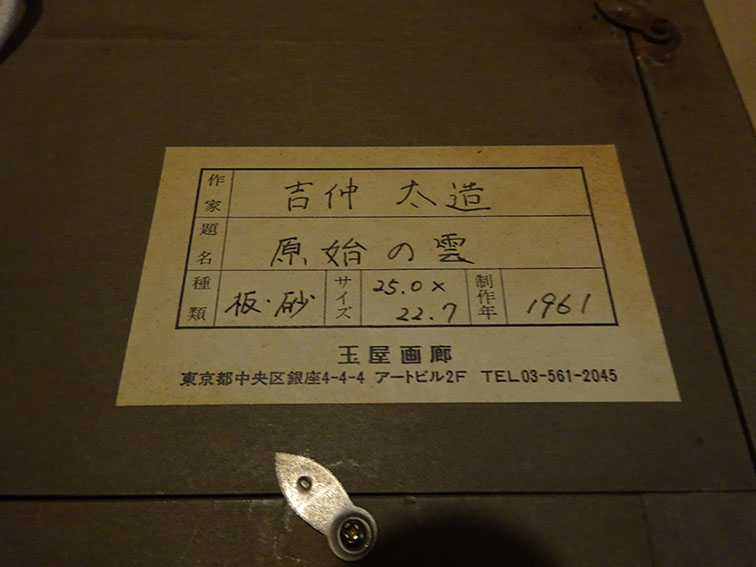 作家 吉仲 太造
題名 原始の雲
種類 板・砂 サイズ 25.0×22.7 制作年 1961
玉屋画廊
東京都中央区銀座4-4-4 アートビル2F TEL03-561-2045